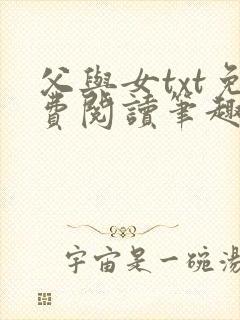 父與女txt免
費閱讀筆趣
宇宙是一碗湯